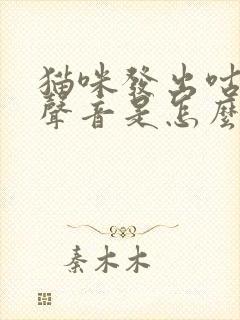 猫咪發出咕
聲音是怎麼
秦木木